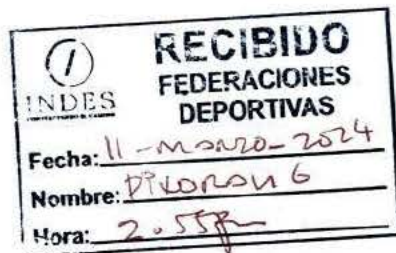 RECIBIDO
FEDERACIONES
DEPORTIVAS
INDES
Fecha: 11-MARZO-2024
Nombre:
Hora: 2.55pm